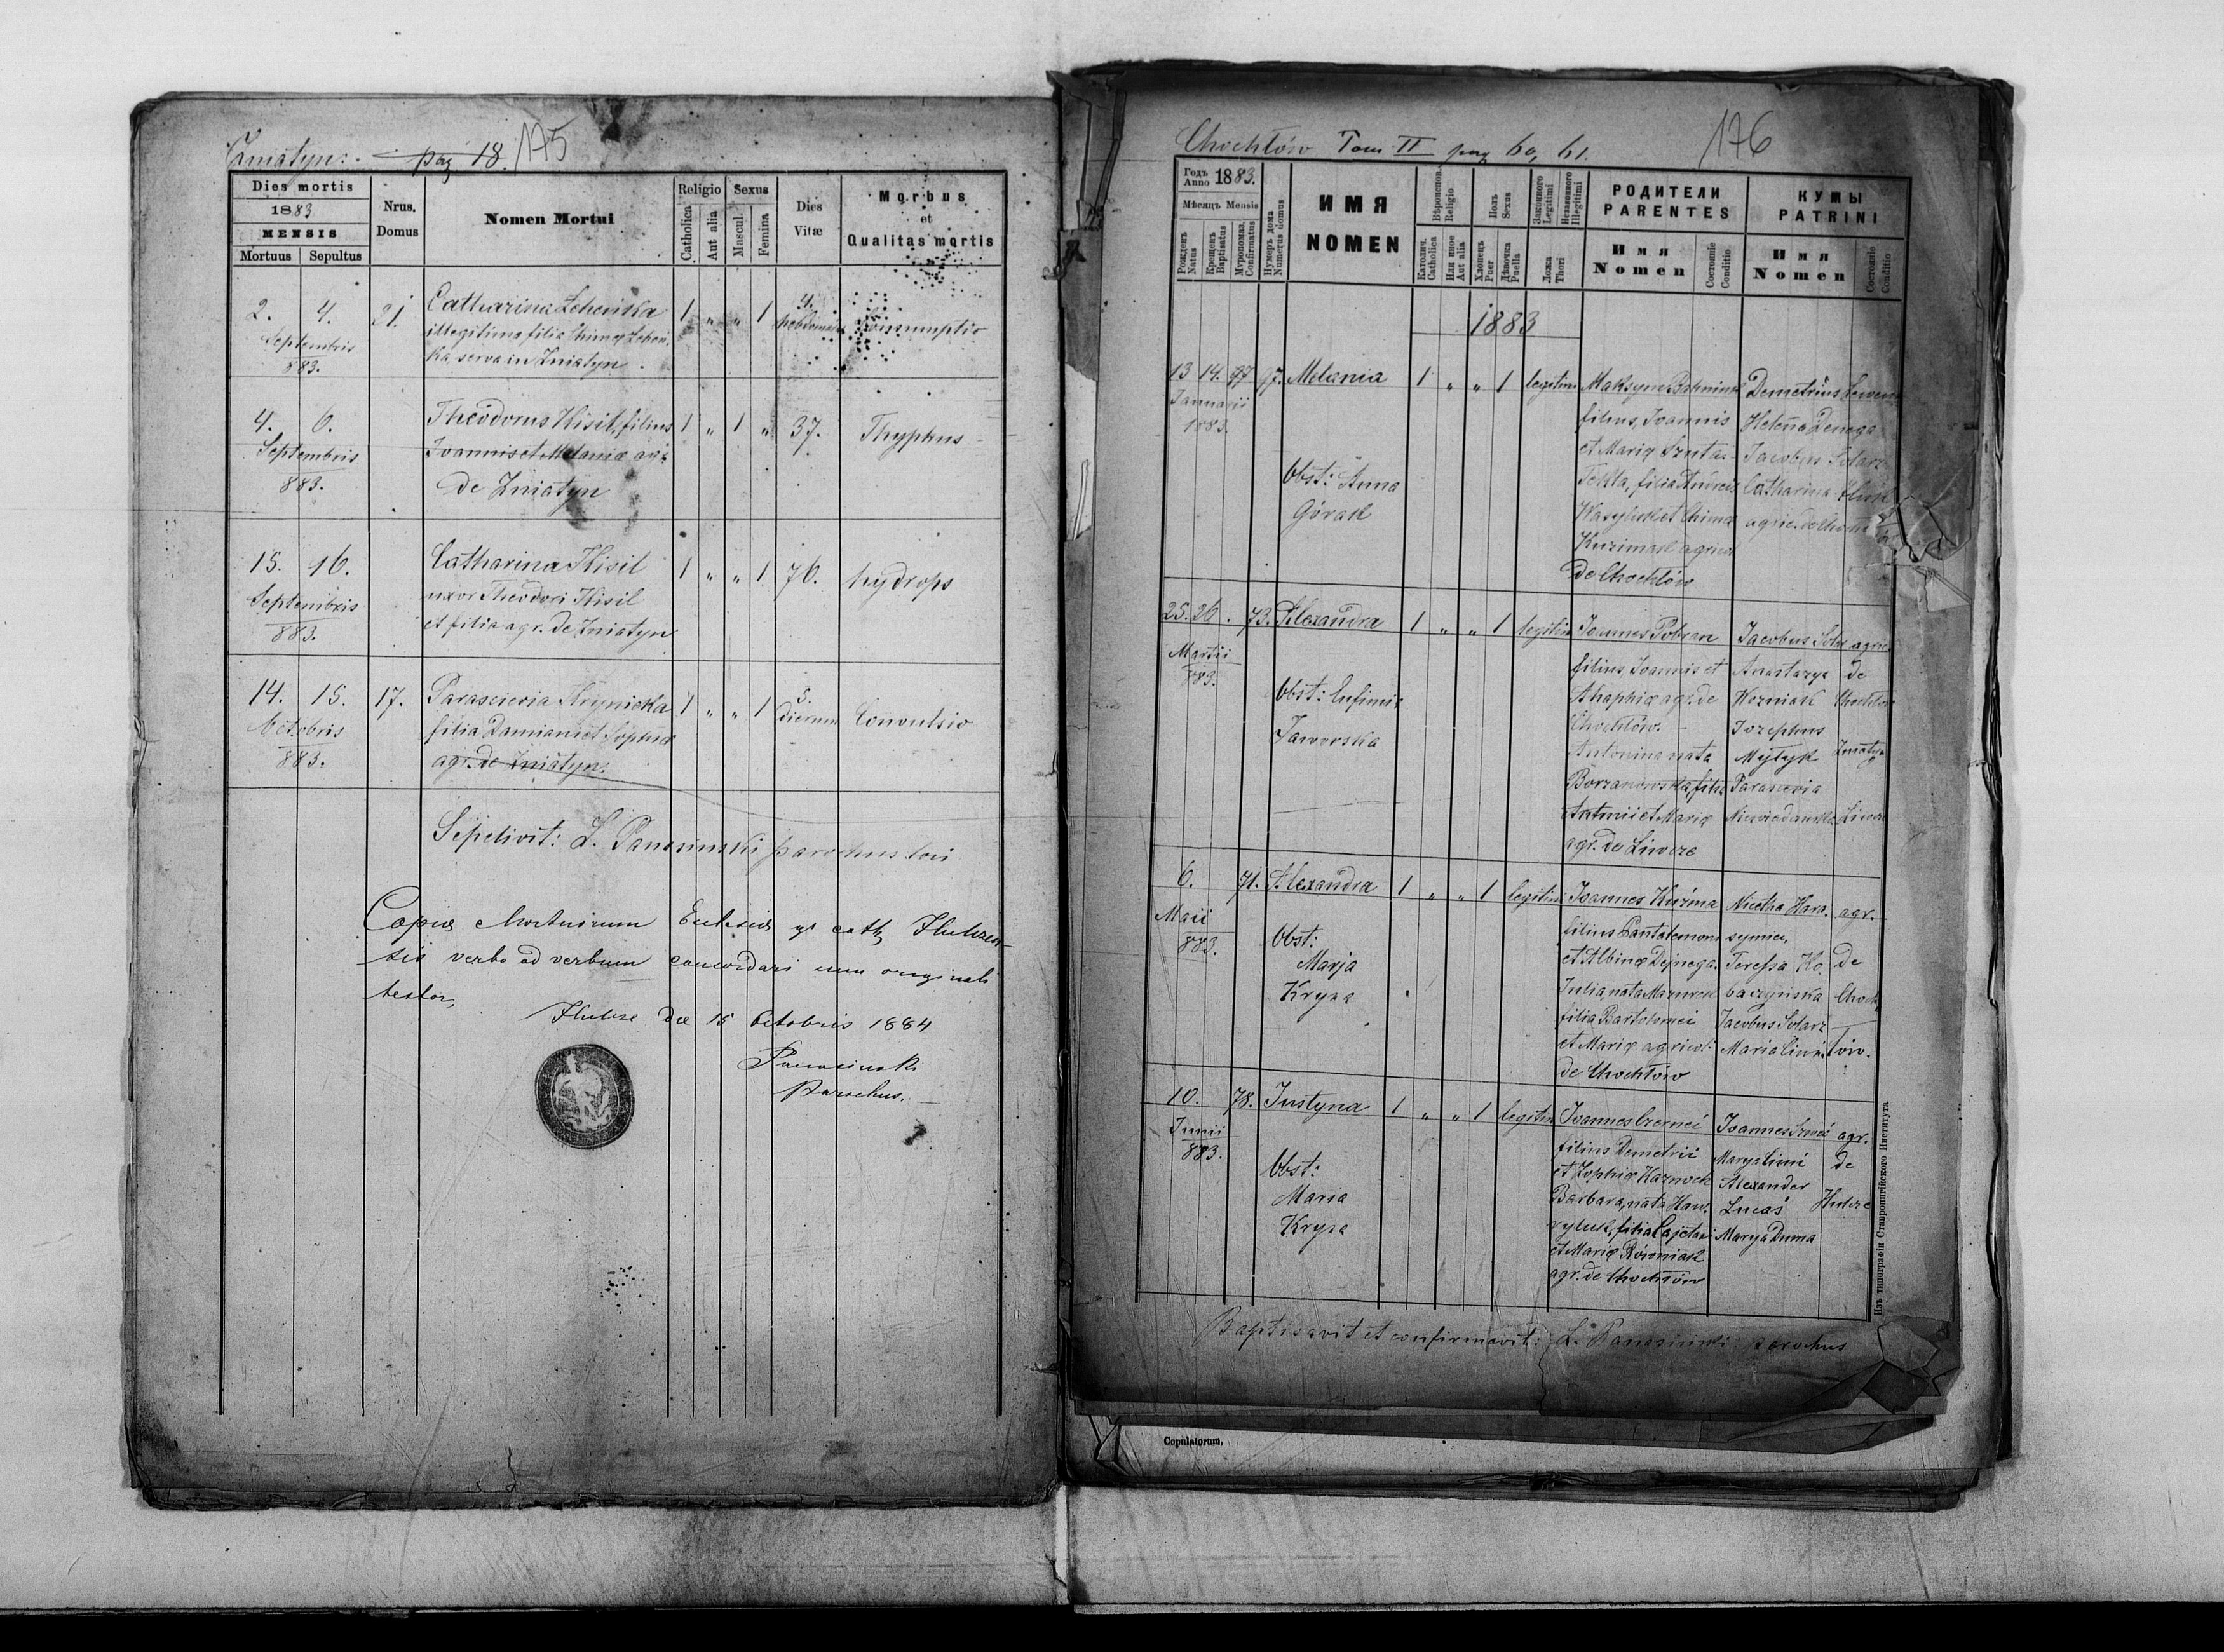 Żniatyn: pag 18. 175
Dies mortis
1883
MENSIS
Mortuus Sepultus
Nrus. Domus
Nomen Mortui
Religio
Catholica
Aut alia
Sexus
Mascul.
Femina
Dies Vitæ
Morbus
et
Qualitas mortis
2. 4. 21. Catharina 1 " " 1 4. Consumptio
Septembris illegitima filia
883. serva in Żniatyn
4. 6. Theodorus Kisil, filius 1 " 1 " 37. Thyphus
Septembris Joannis et Melaniæ agr.
883. de Żniatyn
15. 16. Catharina Kisil 1 " " 1 76. hydrops
Septembris uxor Theodori Kisil
883. et filia agr. de Żniatyn
14. 15. 17. Parascevia Hrynicka 1 " " 1 5. dierum Convulsio
Octobris filia Damiani et Sophiæ
883. agr. de Żniatyn.
Sepelivit: L. Panasinski parochus loci
Copia Mortuorum Ecclesiæ gr cath Hulczen-
sis verbo ad verbum concordari cum originali
testor,
Hulcze die 15 Octobris 1884
Panasinski
Parochus.
Chochłów Tom II pag 60, 61. 176
Годъ Anno 1883.
Мѣсяцъ Mensis
Рожденъ Natus
Крещенъ Baptisatus
Мѵропомаз. Confirmatus
Нумеръ дома Numerus domus
ИМЯ
NOMEN
Вѣроиспов. Religio
Католич. Catholica
Или иное Aut alia
Полъ Sexus
Хлопецъ Puer
Дѣвочка Puella
Законного Legitimi
Незаконного Illegitimi
Ложа Thori
РОДИТЕЛИ
PARENTES
Имя Nomen
Состояніе Conditio
КУМЫ
PATRINI
Имя Nomen
Состояніе Conditio
1883
13 14. 97. Melania 1 " " 1 legitim. Maksym Demetrius
Januarii filius Joannis Helena
1883. et Mariæ Jacobus Solarz
Obst: Anna Tekla, filia Andreæ Catharina
Górak Wasyluk et
agricol.
de Chochłów
25. 26. 73. Alexandra 1 " " 1 legitim Joannes Pobran Jacobus agric.
Martii filius, Joannis et Anastazya de
883. Ahaphiæ agr. de Wozniak Chochłów
Obst: Eufimia Chochłów. Jozephus
Jaworska Antonina nata Mytyk Żniatyn
Borzanowska, filia Parascevia
Antonii et Mariæ Liwcze
agr. de Liwcze
6. 71. Alexandra 1 " " 1 legitim Joannes Kuźma Nicetha Hara- agr.
Maii filius Pantalemoni symica,
883. Obst: et Albinæ Dejnega. Teressa Ho- de
Marja Julia, nata Mazurek baczynska Choch-
Kryza filia Bartolomei Jacobus Solarz
et Mariæ agricol. Maria łów.
de Chochłów
10. 78. Justyna 1 " " 1 legitim Joannes Czernei Joannes agr.
Junii filius Demetrii Marya de
883. Obst: et Zophiæ Alexander
Maria Barbara, nata Haw- Lucas Hulcze
Kryza ryluk, filia Cajetani Marya Duma
et Mariæ Równiak
agr. de Chochłów
Baptisavit et confirmavit: L. Panasinski parochus
Изъ типографіи Ставропигійского Института
Copulatorum.